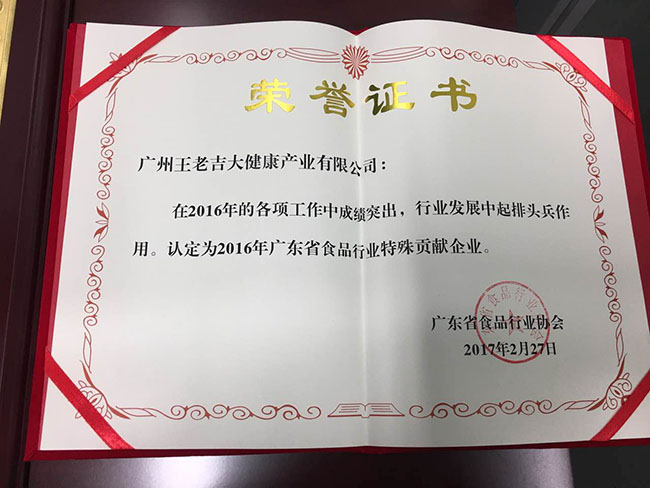 荣誉证书
广州王老吉大健康产业有限公司：
在2016年的各项工作中成绩突出，行业发展中起排头兵作
用。认定为2016年广东省食品行业特殊贡献企业。
广东省食品行业协会
2017年2月27日